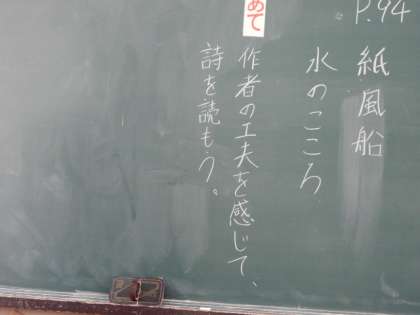 P.94
紙風船
水のこころ
めて
作者の工夫を感じて、
詩を読もう。